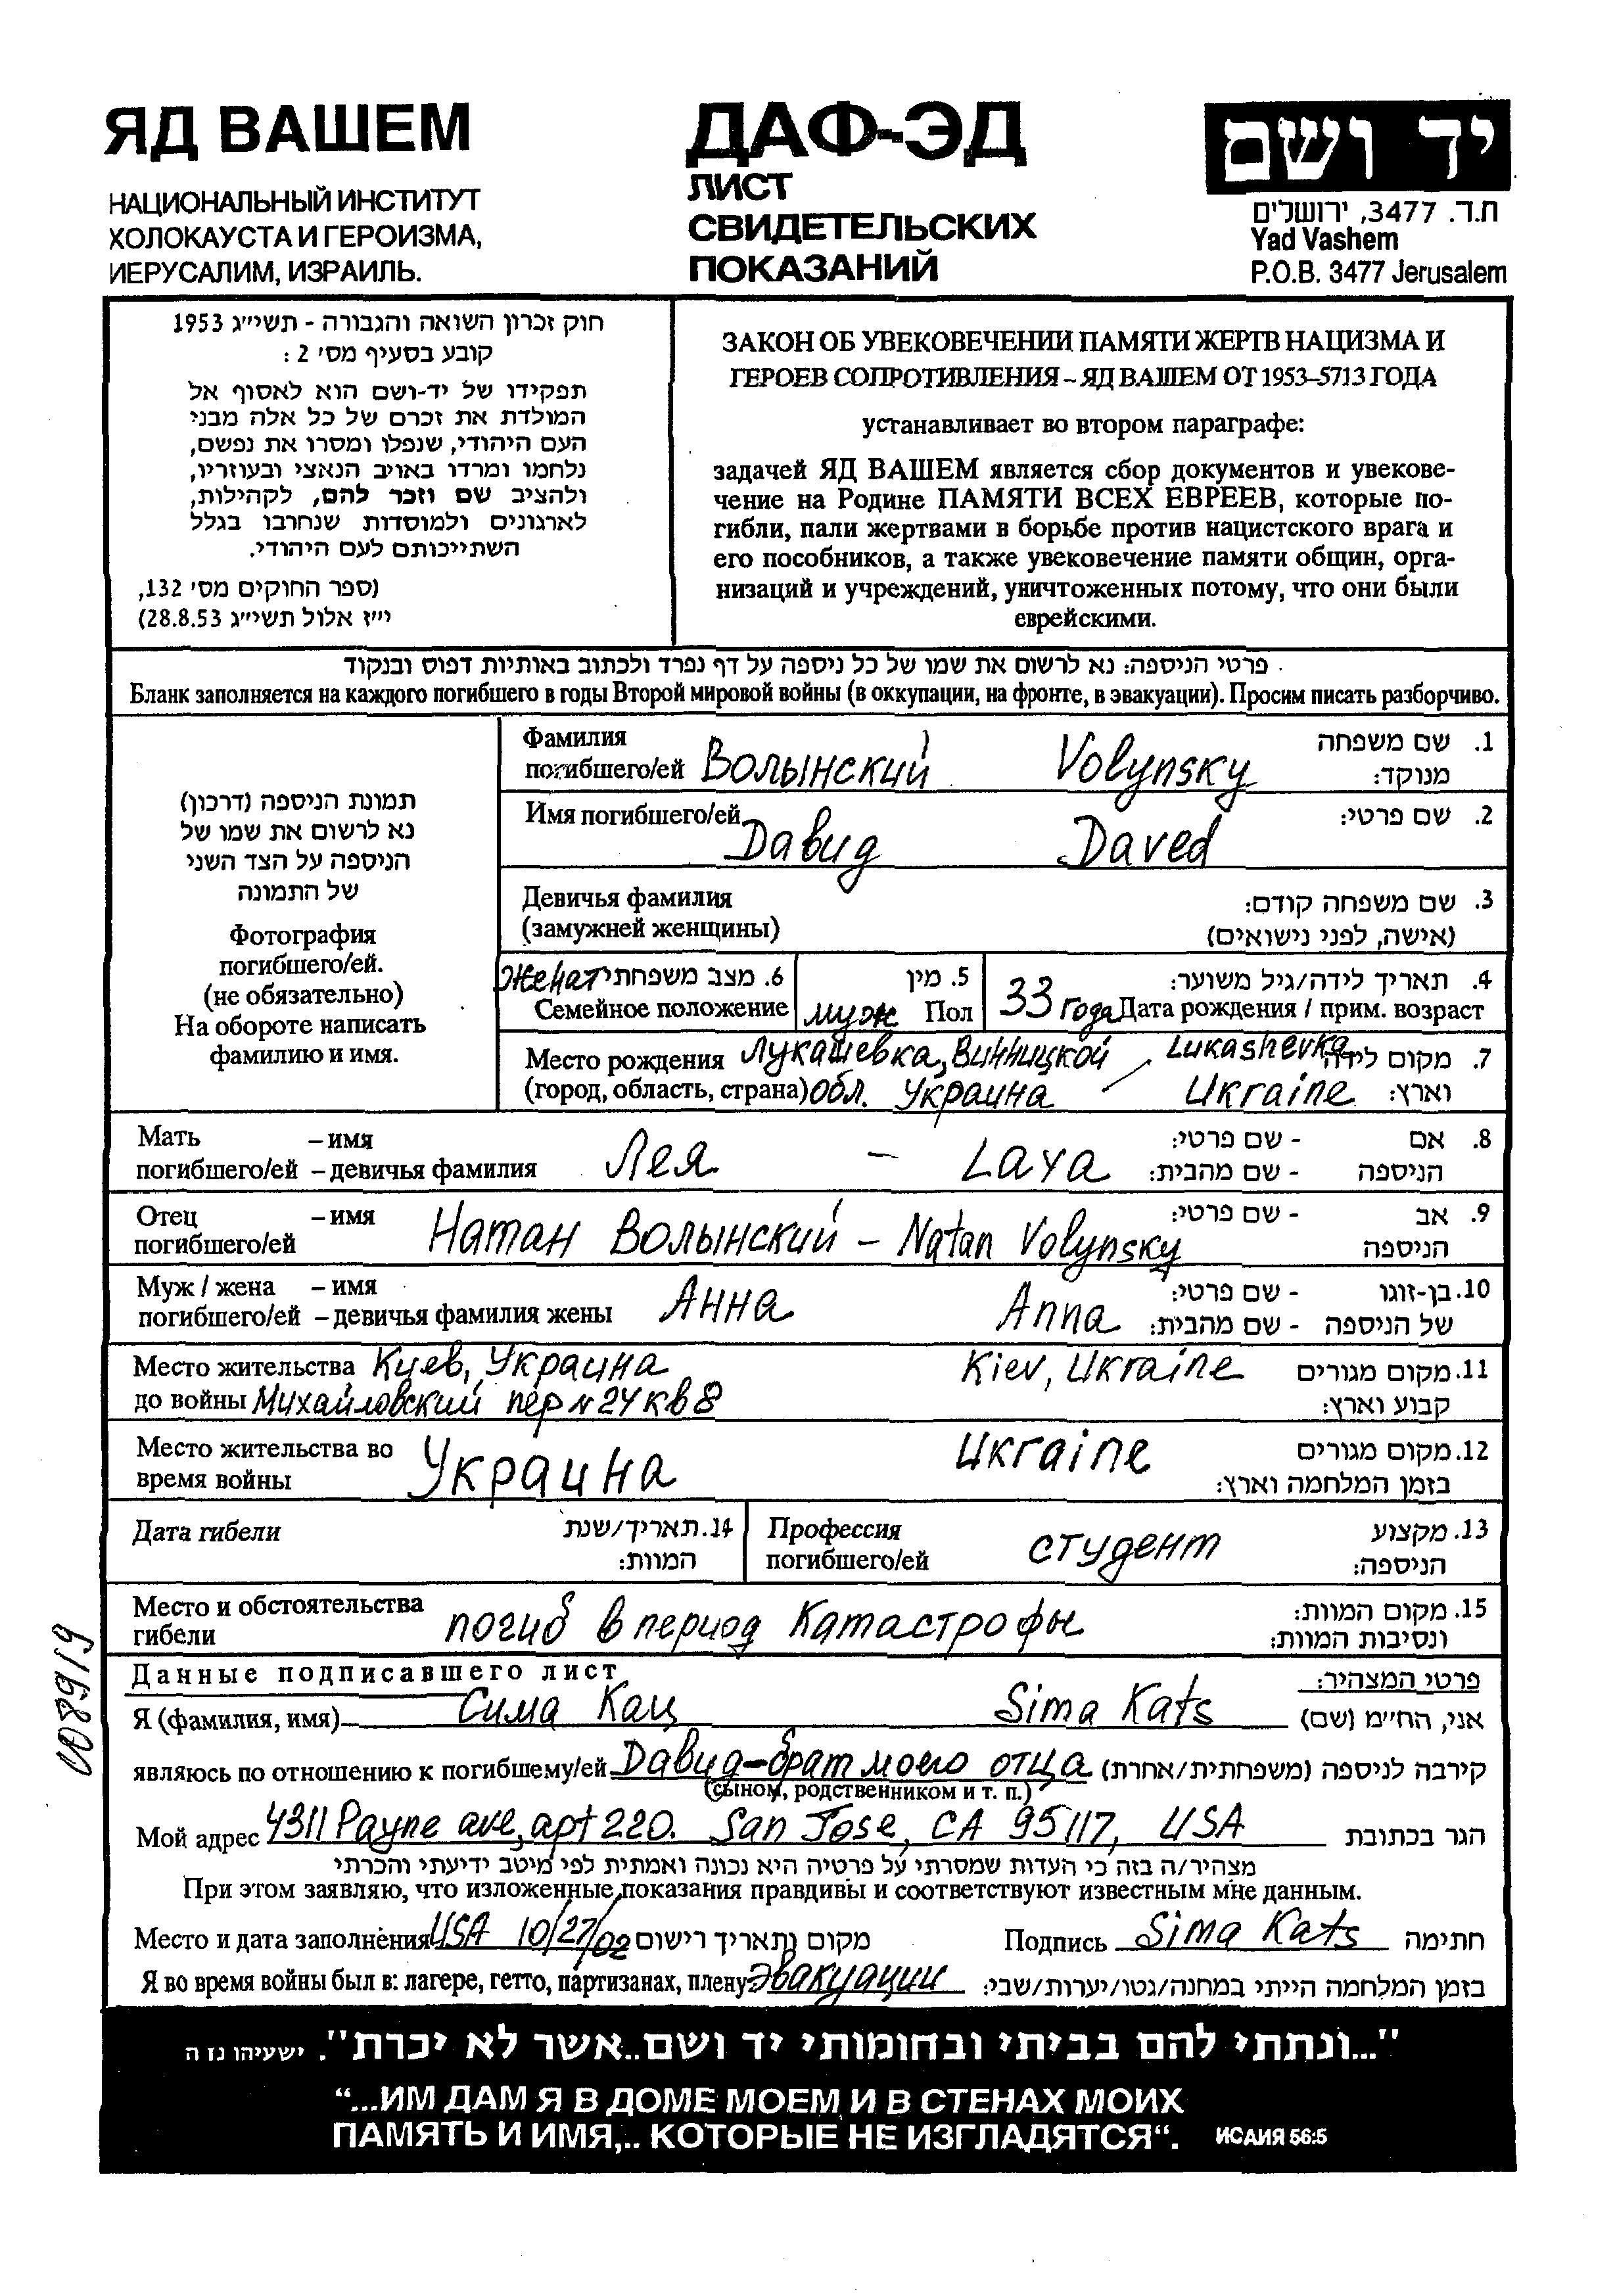 ЯД ВАШЕМ
НАЦИОНАЛЬНЫЙ ИНСТИТУТ
ХОЛОКАУСТА И ГЕРОИЗМА,
ИЕРУСАЛИМ, ИЗРАИЛЬ.
ДАФ-ЭД
ЛИСТ
СВИДЕТЕЛЬСКИХ
ПОКАЗАНИЙ
יד ושם
ת.ד. 3477, ירושלים
Yad Vashem
P.O.B. 3477 Jerusalem
חוק זכרון השואה והגבורה - תשי"ג 1953
קובע בסעיף מס' 2 :
תפקידו של יד-ושם הוא לאסוף אל
המולדת את זכרם של כל אלה מבני
העם היהודי, שנפלו ומסרו את נפשם,
נלחמו ומרדו באויב הנאצי ובעוזריו,
ולהציב שם וזכר להם, לקהילות,
לארגונים ולמוסדות שנחרבו בגלל
השתייכותם לעם היהודי.
(ספר החוקים מס' 132,
י"ז אלול תשי"ג 28.8.53)
ЗАКОН ОБ УВЕКОВЕЧЕНИИ ПАМЯТИ ЖЕРТВ НАЦИЗМА И
ГЕРОЕВ СОПРОТИВЛЕНИЯ – ЯД ВАШЕМ ОТ 1953–5713 ГОДА
устанавливает во втором параграфе:
задачей ЯД ВАШЕМ является сбор документов и увекове-
чение на Родине ПАМЯТИ ВСЕХ ЕВРЕЕВ, которые по-
гибли, пали жертвами в борьбе против нацистского врага и
его пособников, а также увековечение памяти общин, орга-
низаций и учреждений, уничтоженных потому, что они были
еврейскими.
פרטי הניספה: נא לרשום את שמו של כל ניספה על דף נפרד ולכתוב באותיות דפוס ובנקוד
Бланк заполняется на каждого погибшего в годы Второй мировой войны (в оккупации, на фронте, в эвакуации). Просим писать разборчиво.
תמונת הניספה (דרכון)
נא לרשום את שמו של
הניספה על הצד השני
של התמונה
Фотография
погибшего/ей.
(не обязательно)
На обороте написать
фамилию и имя.
Фамилия 1. שם משפחה
погибшего/ей Волынский Volynsky מנוקד:
Имя погибшего/ей 2. שם פרטי:
Давид Daved
Девичья фамилия 3. שם משפחה קודם:
(замужней женщины) (אישה, לפני נישואים)
женат 6. מצב משפחתי 5. מין 4. תאריך לידה/גיל משוער:
Семейное положение муж Пол 33 года Дата рождения / прим. возраст
Место рождения Лукашевка, Винницкой Lukashevka 7. מקום לידה
(город, область, страна) обл. Украина / Ukraine וארץ:
Мать – имя 8. אם - שם פרטי:
погибшего/ей – девичья фамилия Лея – Laya הניספה - שם מהבית:
Отец – имя 9. אב - שם פרטי:
погибшего/ей Натан Волынский – Natan Volynsky הניספה
Муж / жена – имя 10. בן-זוגו - שם פרטי:
погибшего/ей – девичья фамилия жены Анна Anna של הניספה - שם מהבית:
Место жительства Киев, Украина Kiev, Ukraine 11. מקום מגורים
до войны Михайловский пер N 24 кв 8 קבוע וארץ:
Место жительства во 12. מקום מגורים
время войны Украина Ukraine בזמן המלחמה וארץ:
Дата гибели 14. תאריך/שנת
המוות:
Профессия 13. מקצוע
погибшего/ей студент הניספה:
Место и обстоятельства 15. מקום המוות:
гибели погиб в период Катастрофы ונסיבות המוות:
Данные подписавшего лист פרטי המצהיר:
Я (фамилия, имя) Сима Кац Sima Kats אני, הח"מ (שם)
являюсь по отношению к погибшему/ей Давид – брат моего отца קירבה לניספה (משפחתית/אחרת)
(сыном, родственником и т. п.)
Мой адрес 4311 Payne ave, apt 220. San Jose, CA 95117, USA הגר בכתובת
מצהיר/ה בזה כי העדות שמסרתי על פרטיה היא נכונה ואמתית לפי מיטב ידיעתי והכרתי
При этом заявляю, что изложенные показания правдивы и соответствуют известным мне данным.
Место и дата заполнения USA 10/27/02 מקום ותאריך רישום Подпись Sima Kats חתימה
Я во время войны был в: лагере, гетто, партизанах, плену эвакуации בזמן המלחמה הייתי במחנה/גטו/יערות/שבי:
"...ונתתי להם בביתי ובחומותי יד ושם..אשר לא יכרת". ישעיהו נז ה
“...ИМ ДАМ Я В ДОМЕ МОЕМ И В СТЕНАХ МОИХ
ПАМЯТЬ И ИМЯ,.. КОТОРЫЕ НЕ ИЗГЛАДЯТСЯ“. ИСАИЯ 56:5